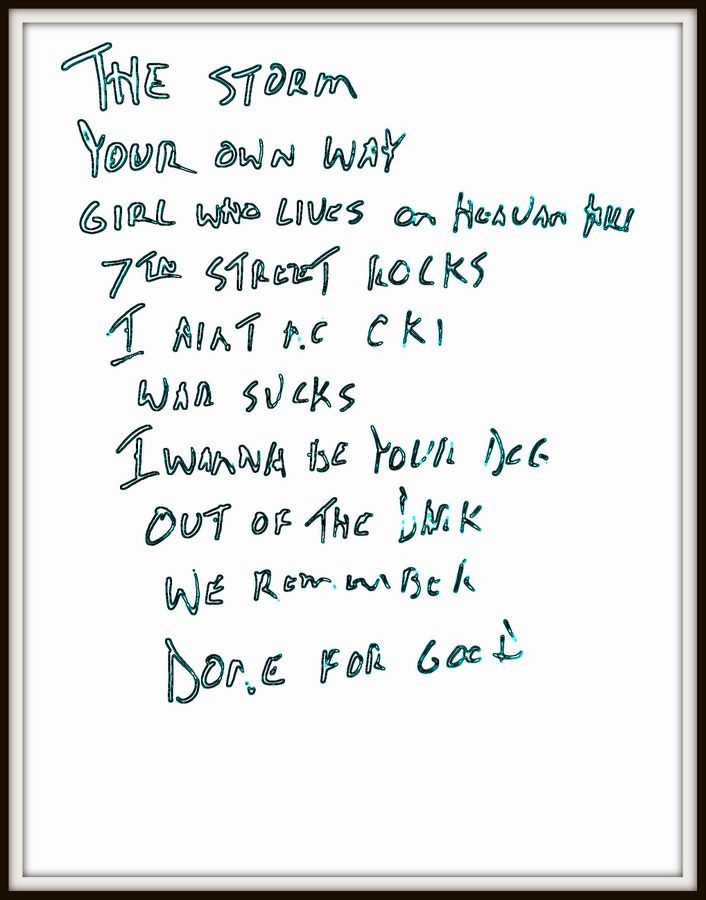 THE STORM
YOUR OWN WAY
GIRL WHO LIVES ON HEAVAN HILL
7TH STREET ROCKS
I AIN'T NO CKI
WAR SUCKS
I WANNA BE YOUR DOG
OUT OF THE DARK
WE REMEMBER
DONE FOR GOOD